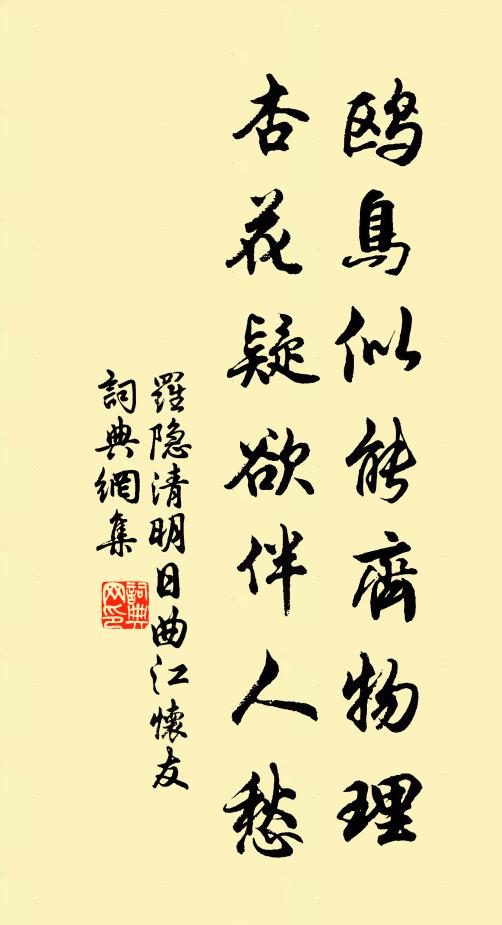 鸥鳥似能齊物理
杏花疑欲伴人愁
羅隐清明日曲江懷友
詞典網集
詞典
网印